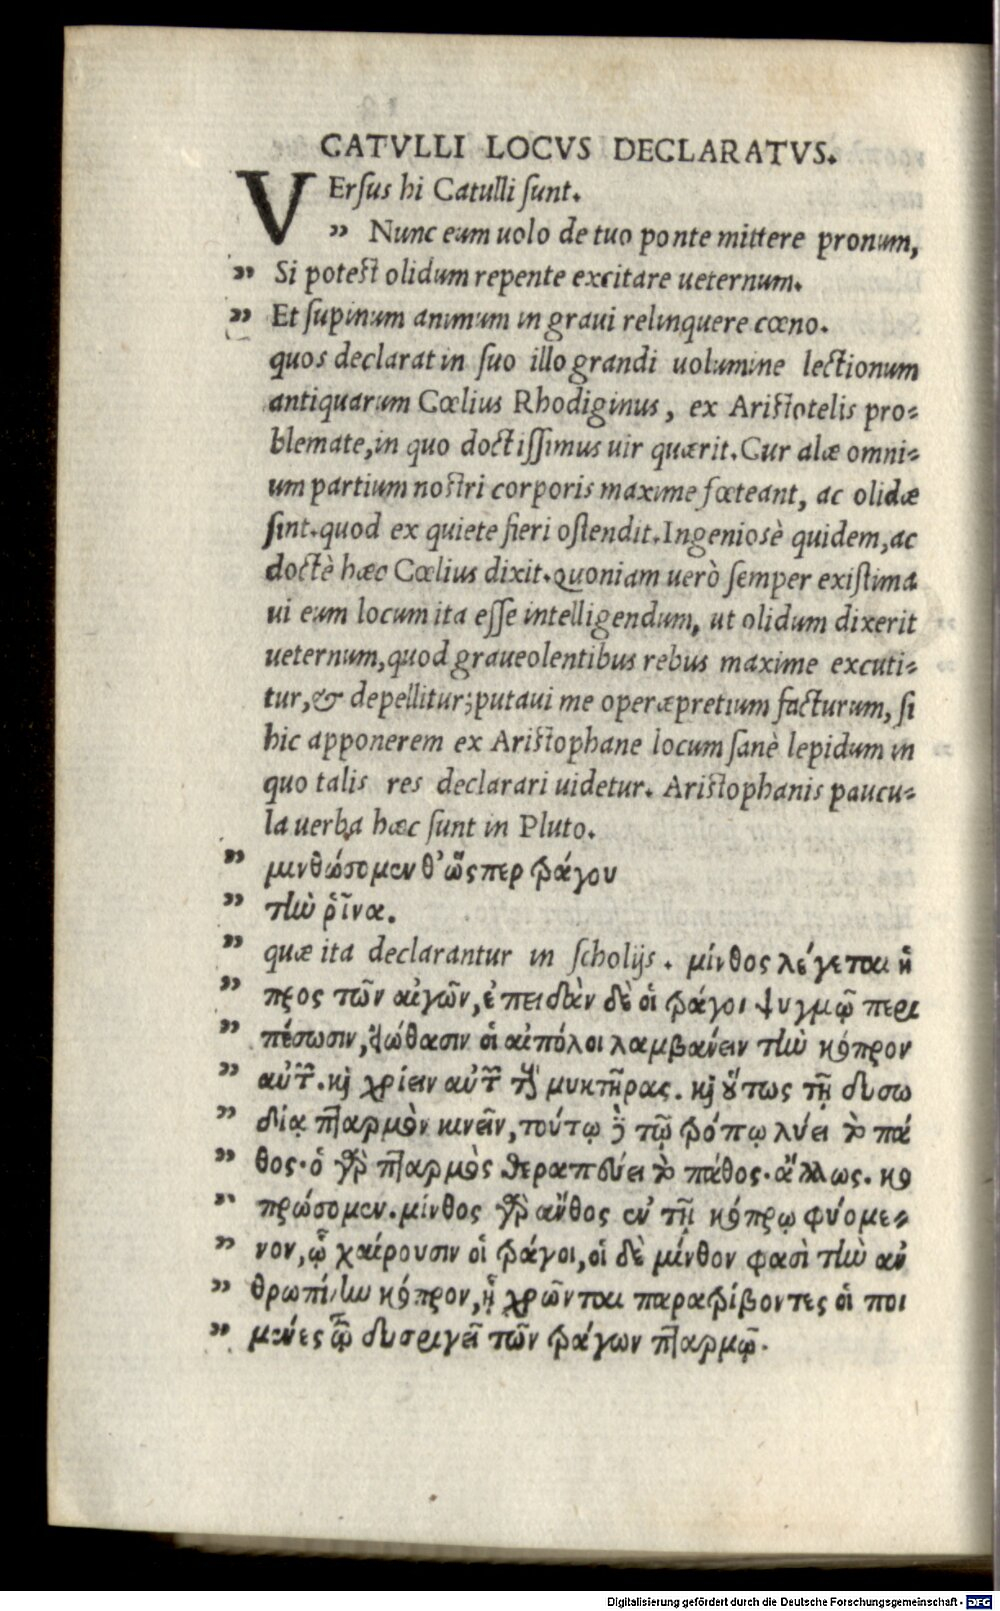 CATVLLI LOCVS DECLARATVS.
VErſus hi Catulli ſunt.
” Nunc eum uolo de tuo ponte mittere pronum,
” Si poteſt olidum repente excitare ueternum.
” Et ſupinum animum in graui relinquere cœno.
quos declarat in ſuo illo grandi uolumine lectionum
antiquarum Cœlius Rhodiginus, ex Ariſtotelis pro-
blemate, in quo doctiſſimus uir quærit. Cur alæ omni-
um partium noſtri corporis maxime fœteant, ac olidæ
ſint. quod ex quiete fieri oſtendit. Ingeniosè quidem, ac
doctè hæc Cœlius dixit. quoniam uerò ſemper exiſtima
ui eum locum ita eſſe intelligendum, ut olidum dixerit
ueternum, quod graueolentibus rebus maxime excuti-
tur, & depellitur; putaui me operæpretium facturum, ſi
hic apponerem ex Ariſtophane locum ſanè lepidum in
quo talis res declarari uidetur. Ariſtophanis paucu-
la uerba hæc ſunt in Pluto.
” μινθώσομεν θ’ ὥςπερ τράγου
” τὴν ῥῖνα.
” quæ ita declarantur in ſcholijs. μίνθος λέγεται ἡ
” προς τῶν αἰγῶν, ἐπειδὰν δὲ οἱ τράγοι ψυγμῷ περι
” πέσωσιν, εἰώθασιν οἱ αἰπόλοι λαμβάνειν τὴν κόπρον
” αὐτῶν. καὶ χρίειν αὐτῶν τοὺς μυκτῆρας. καὶ οὕτως τῇ δυσω
” δίᾳ πταρμὸν κινεῖν, τούτῳ δὲ τῷ τρόπῳ λύει τὸ πά
” θος. ὁ γὰρ πταρμὸς θεραπεύει τὸ πάθος. ἄλλως. κο
” πρώσομεν. μίνθος γὰρ ἄνθος ἐν τῇ κόπρῳ φυόμε-
” νον, ᾧ χαίρουσιν οἱ τράγοι, οἱ δὲ μίνθον φασὶ τὴν ἀν
” θρωπίνην κόπρον, ᾗ χρῶνται παρατρίβοντες οἱ ποι
” μένες τῷ δυσριγεῖ τῶν τράγων πταρμῷ.
Digitalisierung gefördert durch die Deutsche Forschungsgemeinschaft - DFG